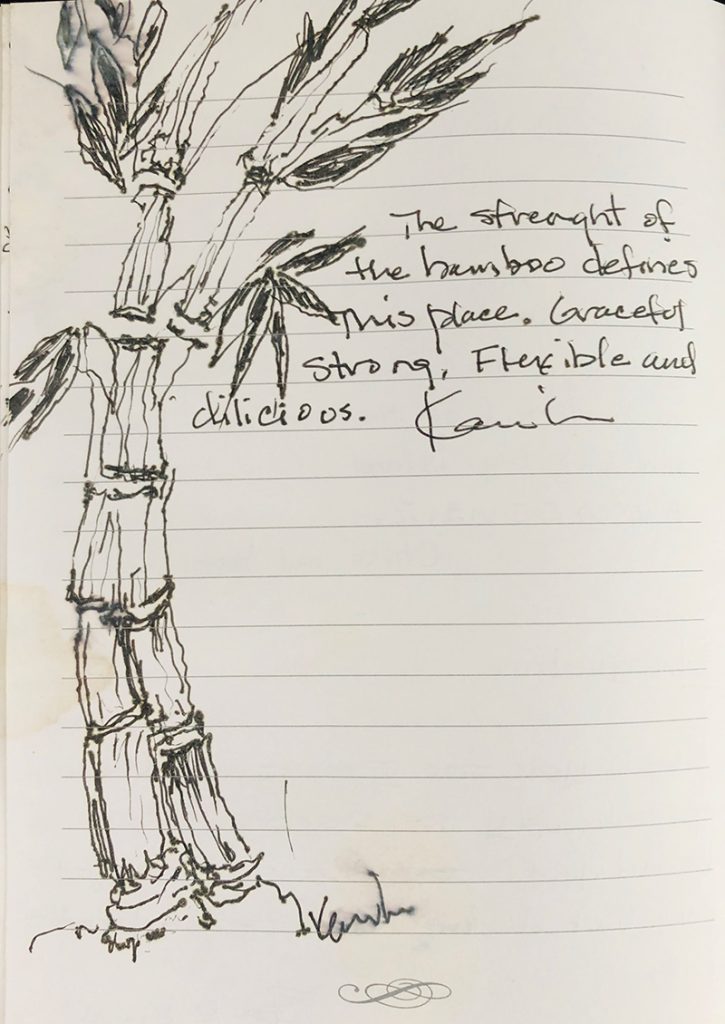 The strenght of
the bamboo defines
this place. Graceful
strong, Flexible and
dilicious.